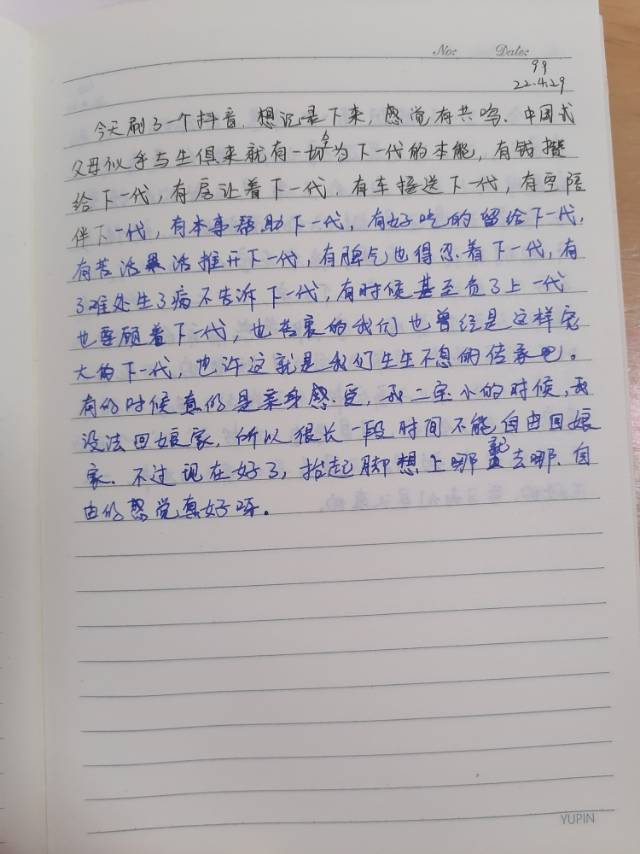 No: Date:
99
22.4.29
今天刷了一个抖音,想记录下来,感觉有共鸣.中国式
父母似乎与生俱来就有一切令为下一代的本能,有钱攒
给下一代,有房让着下一代,有车接送下一代,有空陪
伴下一代,有本事帮助下一代,有好吃的留给下一代,
有苦活累活推开下一代,有脾气也得忍着下一代,有
了难处生了病不告诉下一代,有时候甚至负了上一代
也要顾着下一代,也许衷的我们也曾经是这样宠
大的下一代,也许这就是我们生生不息的传承吧。
有的时候真的是亲身感受,我二宝小的时候,我
没法回娘家,所以很长一段时间不能自由回娘
家.不过现在好了,抬起脚想上哪就去哪.自
由的感觉真好呀。
YUPIN